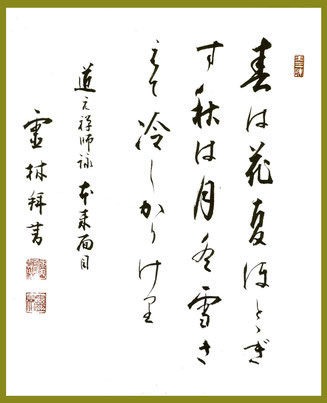 春は花夏ほとゝぎ
す秋は月冬雪さ
えて冷しかりけり
道元禅師詠 本来面目
霊林拜書